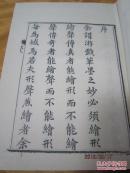 序
余謂游戲筆墨之妙必須繪形
繪聲傳真者能繪形而不能繪
聲傳奇者能繪聲而不能繪形
每為憾焉若夫形聲兼繪者余